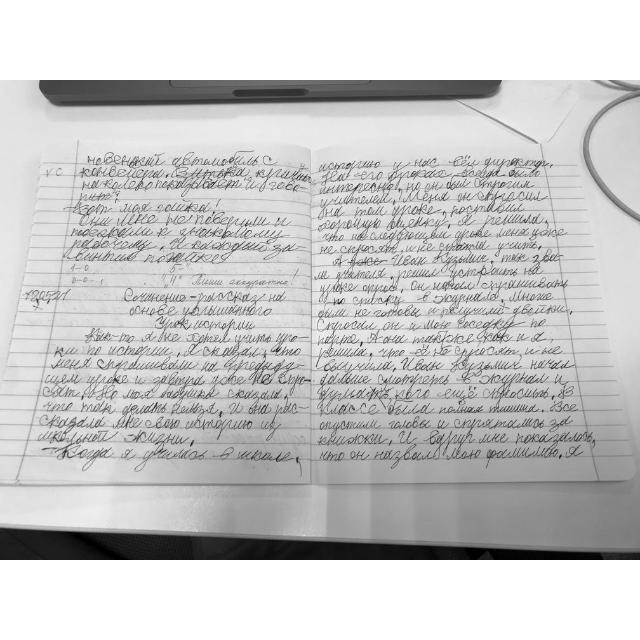 новенький автомобиль с
конвейера. Витька
на колесо показывает и гово-
рит:
Вот моя гайка!
Они мне не поверили и
позвали к знакомому
рабочему. И каждый за-
винтил по гайке
V С
1-0 5-
0-0 "4" Пиши аккуратно!
Упр 521
Сочинение-рассказ на
основе услышанного
Урок истории
Как-то я не хотел учить уро-
ки по истории. Я сказал, что
меня спрашивали на предыду-
щем уроке и завтра уже не спро-
сят. Но моя бабушка сказала,
что так делать нельзя. И она рас-
сказала мне свою историю из
школьной жизни.
Когда я училась в школе,
историю у нас вёл директор.
На его уроках всегда было
интересно, но он был строгим
учителем. Меня он спросил
на том уроке, поставил
хорошую оценку. Я решила,
что на следующем уроке меня уже
не спросят и не стала учить.
А Иван Кузьмич, так зва-
ли учителя, решил устроить на
уроке опрос. Он начал спрашивать
по списку в журнале. Многие
были не готовы и получили двойки.
Спросил он и мою соседку по
парте. А она так же как и я
решила, что её не спросят и не
выучила. Иван Кузьмич начал
дальше смотреть в журнал и
думать кого ещё спросить. В
классе была полная тишина. Все
опустили головы и спрятались за
книжки. И вдруг мне показалось,
что он назвал мою фамилию. Я